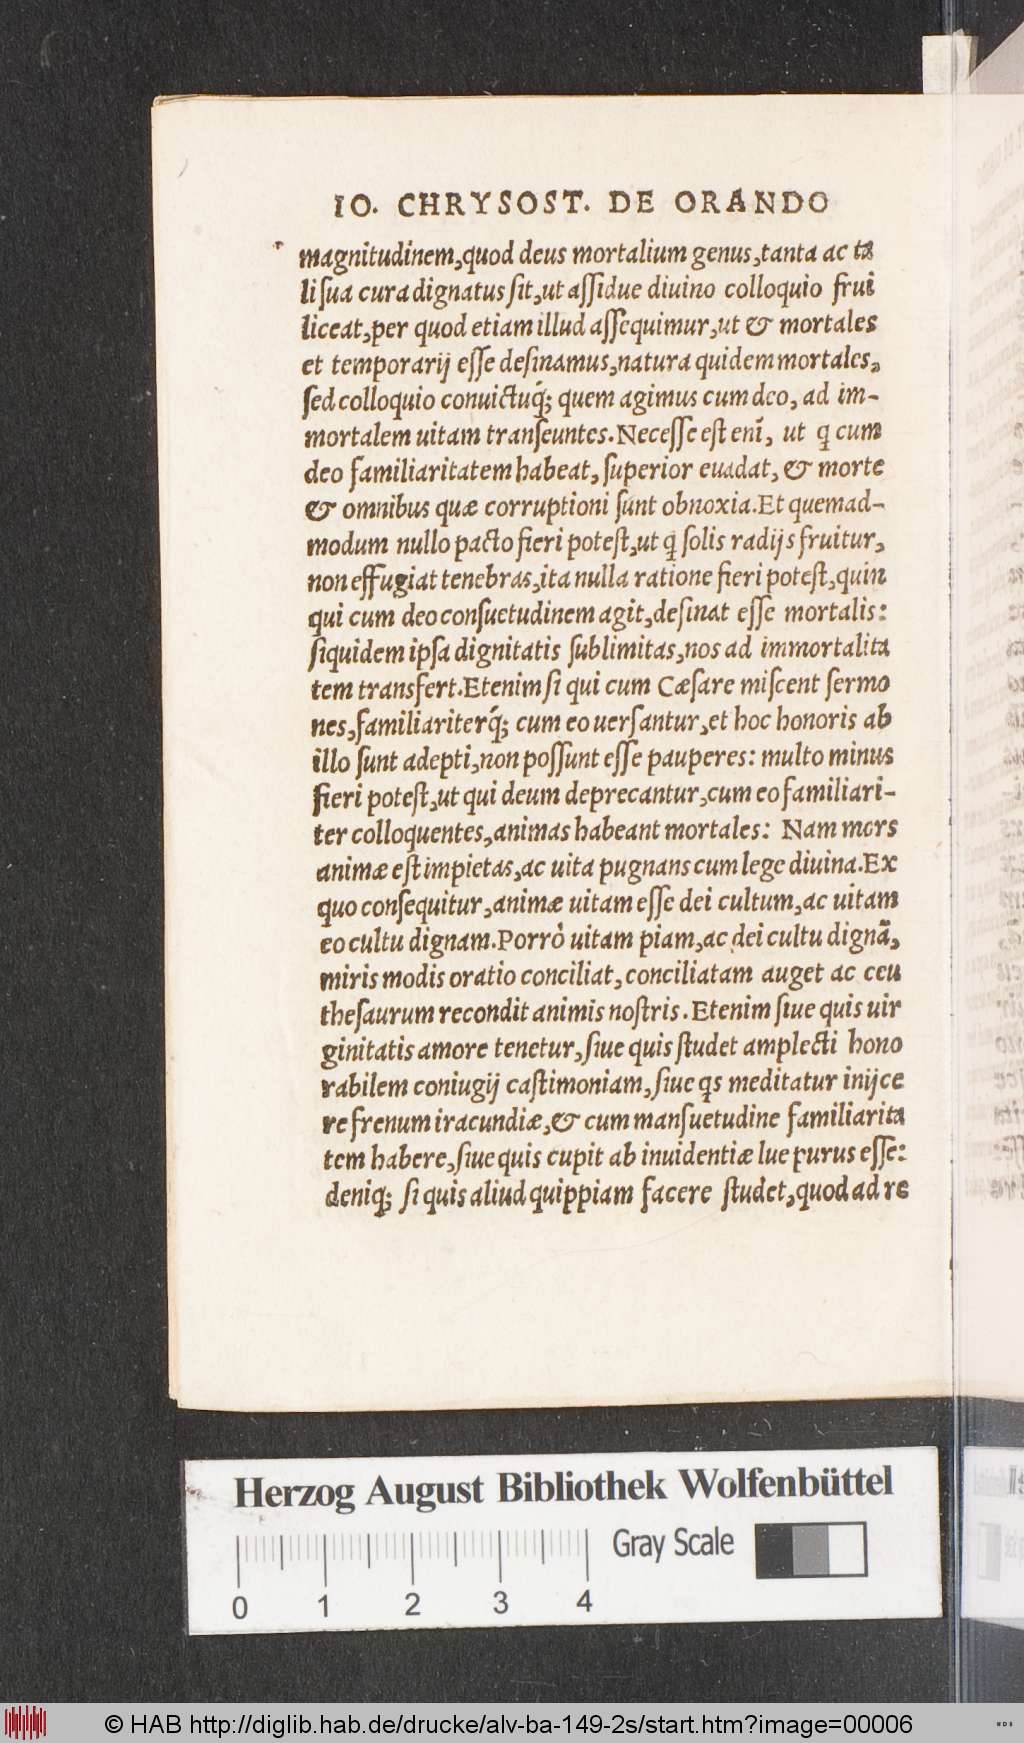 IO. CHRYSOST. DE ORANDO
magnitudinem,quod deus mortalium genus,tanta ac ta
li ſua cura dignatus ſit,ut aſſidue diuino colloquio frui
liceat,per quod etiam illud aſſequimur,ut & mortales
et temporarij eſſe deſinamus,natura quidem mortales,
ſed colloquio conuictuq́; quem agimus cum deo, ad im-
mortalem uitam tranſeuntes. Neceſſe eſt enī, ut q̨ cum
deo familiaritatem habeat, ſuperior euadat, & morte
& omnibus quæ corruptioni ſunt obnoxia. Et quemad-
modum nullo pacto fieri poteſt,ut q̨ ſolis radijs fruitur,
non effugiat tenebras,ita nulla ratione fieri poteſt,quin
qui cum deo conſuetudinem agit,deſinat eſſe mortalis:
ſiquidem ipſa dignitatis ſublimitas,nos ad immortalita
tem transfert. Etenim ſi qui cum Cæſare miſcent ſermo
nes,familiariterq́; cum eo uerſantur,et hoc honoris ab
illo ſunt adepti,non poſſunt eſſe pauperes: multo minus
fieri poteſt,ut qui deum deprecantur,cum eo familiari-
ter colloquentes,animas habeant mortales: Nam mors
animæ eſt impietas,ac uita pugnans cum lege diuina. Ex
quo conſequitur,animæ uitam eſſe dei cultum,ac uitam
eo cultu dignam. Porrò uitam piam,ac dei cultu dignā,
miris modis oratio conciliat,conciliatam auget ac ceu
theſaurum recondit animis noſtris. Etenim ſiue quis uir
ginitatis amore tenetur,ſiue quis ſtudet amplecti hono
rabilem coniugij caſtimoniam,ſiue qs meditatur inijce
re frenum iracundiæ,& cum manſuetudine familiarita
tem habere,ſiue quis cupit ab inuidentiæ lue purus eſſe:
deniq; ſi quis aliud quippiam facere ſtudet,quod ad re
Herzog August Bibliothek Wolfenbüttel
Gray Scale
0 1 2 3 4
© HAB http://diglib.hab.de/drucke/alv-ba-149-2s/start.htm?image=00006